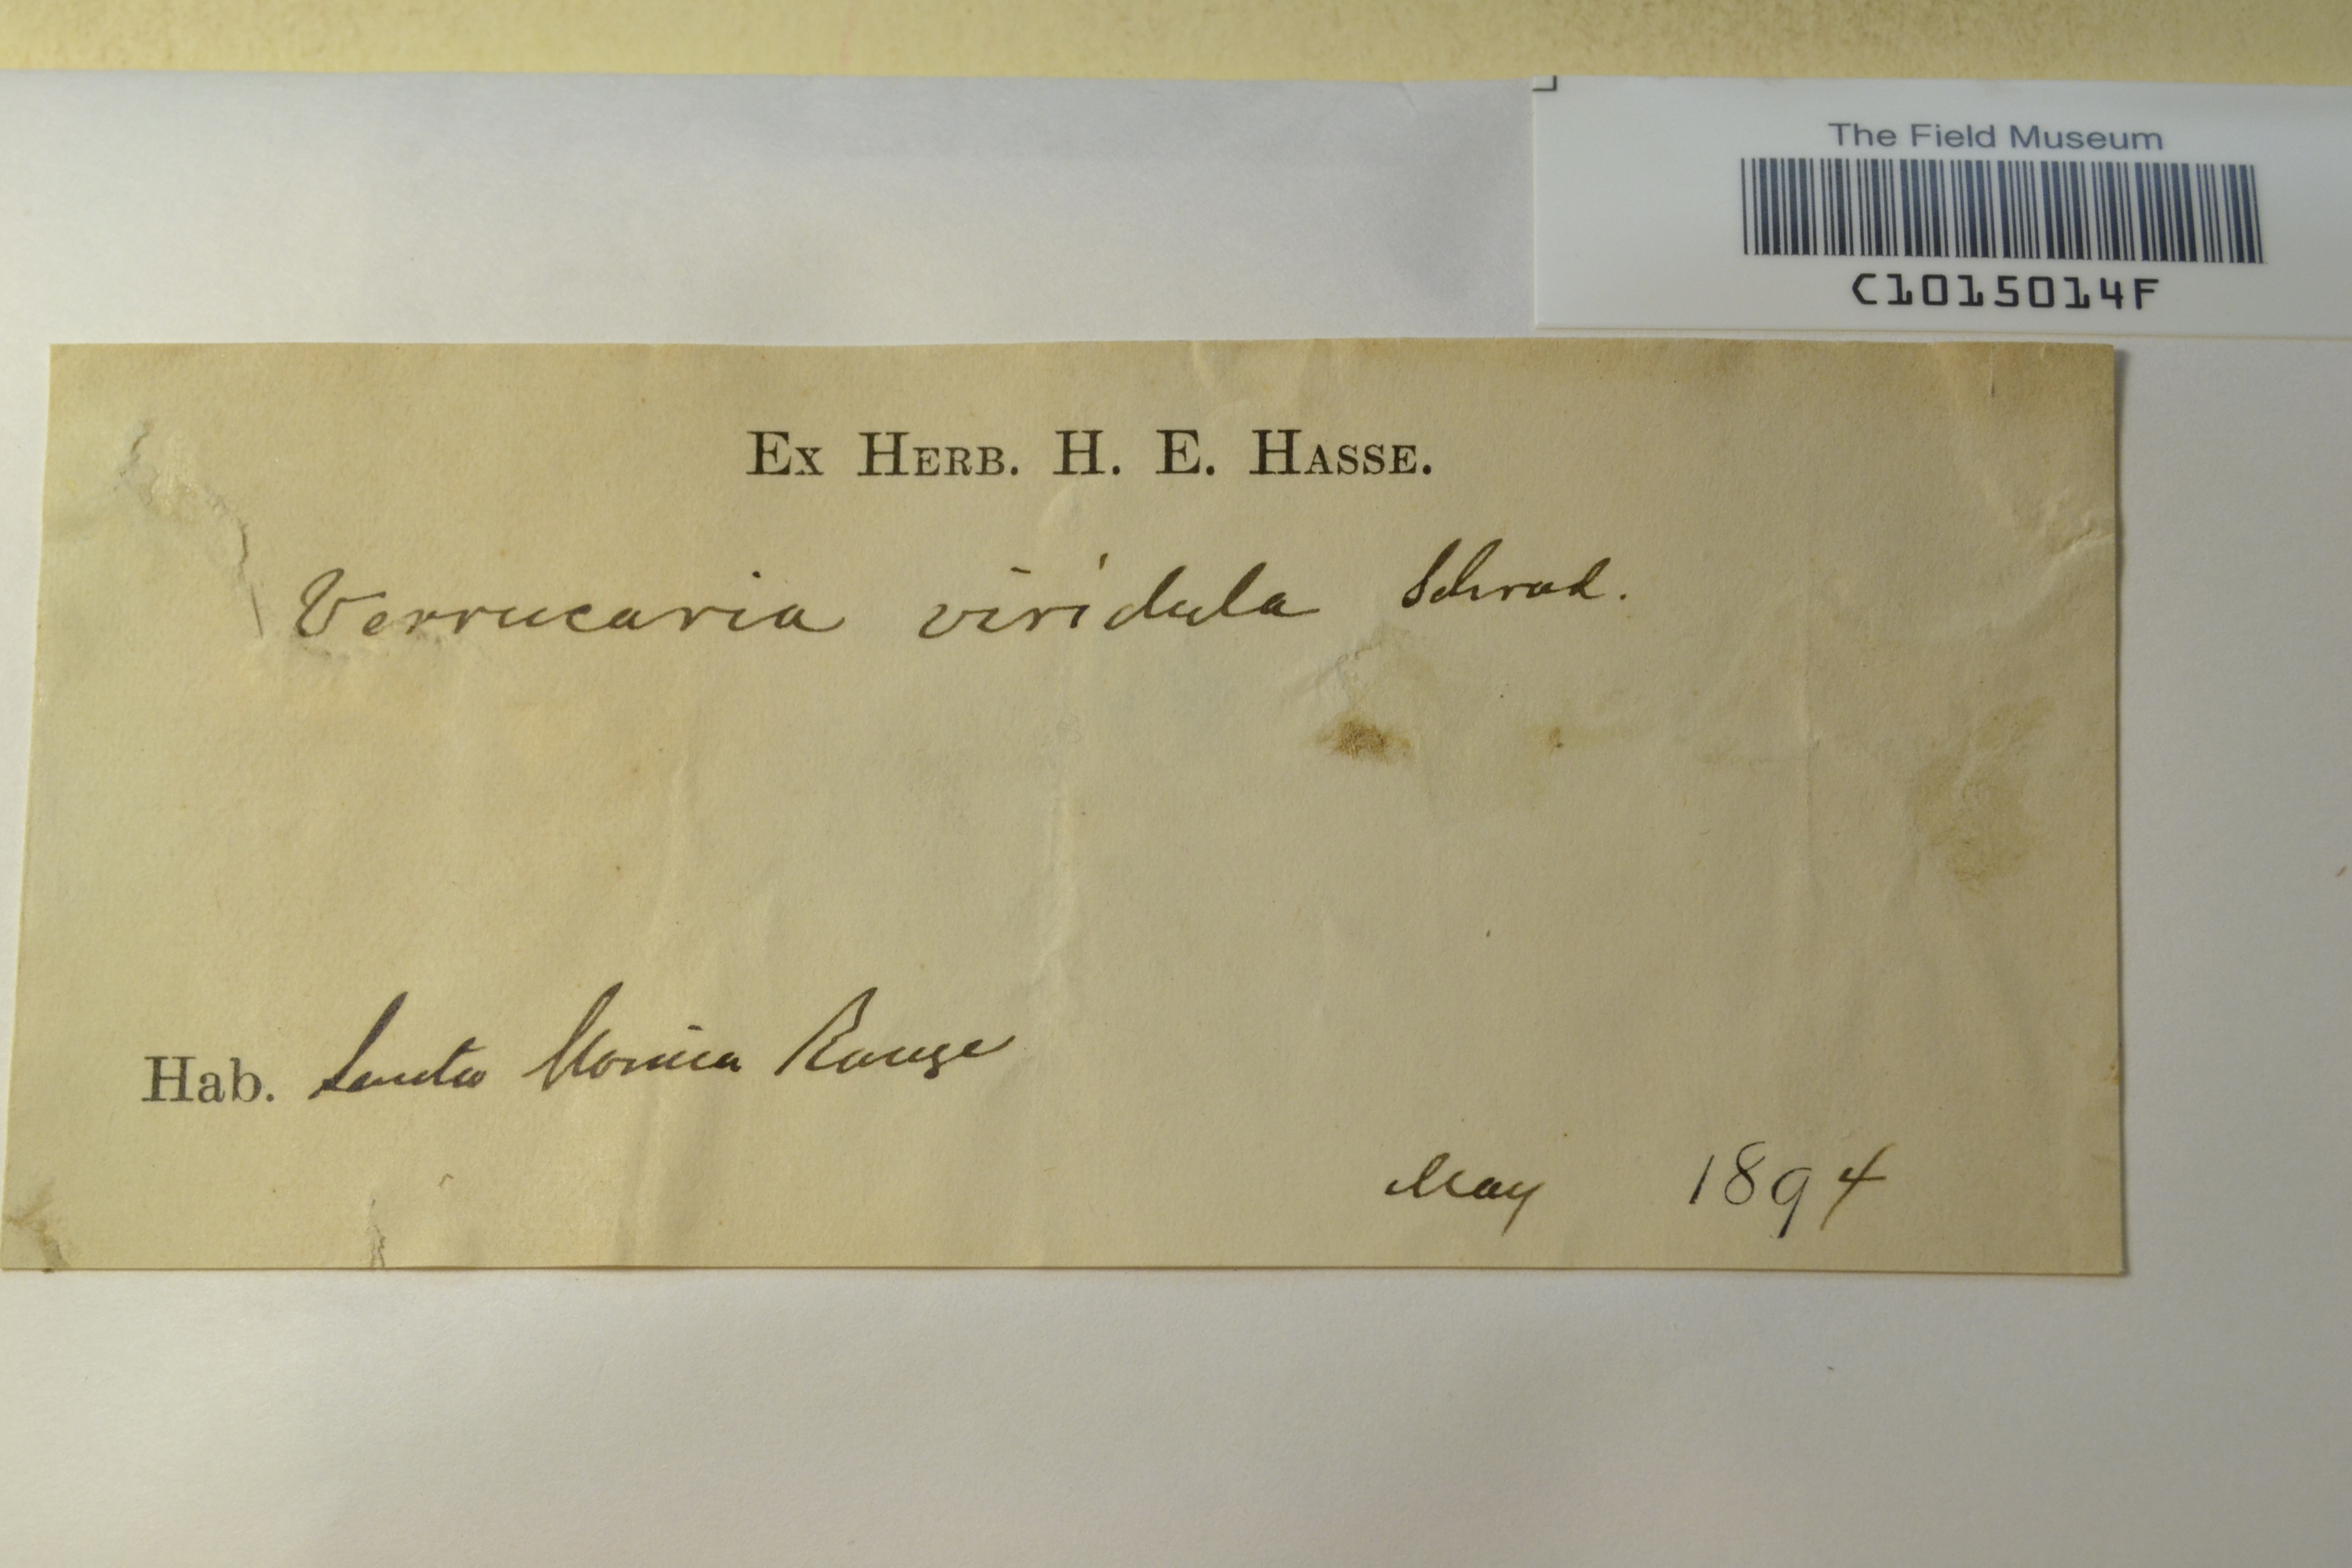 The Field Museum
C1015014F
Ex Herb. H. E. Hasse.
Verrucaria viridula Schrad.
Hab. Santa Monica Range
May 1894